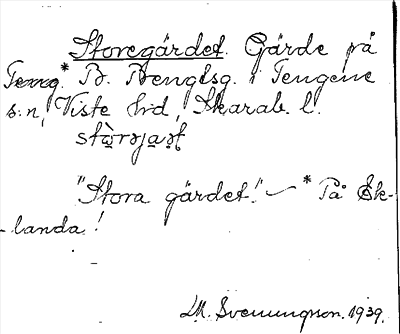 Storegärdet. Gärde på
Teng.* B. Bengtsg. i Tengene
s:n, Viste hd, Skarab. l.
"Stora gärdet." — * På Ek-
-landa!
M. Svenungson. 1939.